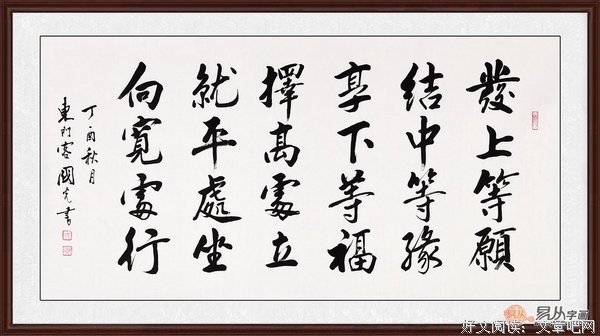 發上等願
結中等緣
享下等福
擇高處立
就平處坐
向寬處行
丁酉秋月
東門容國光書
易从字画
好文阅读：文章吧网